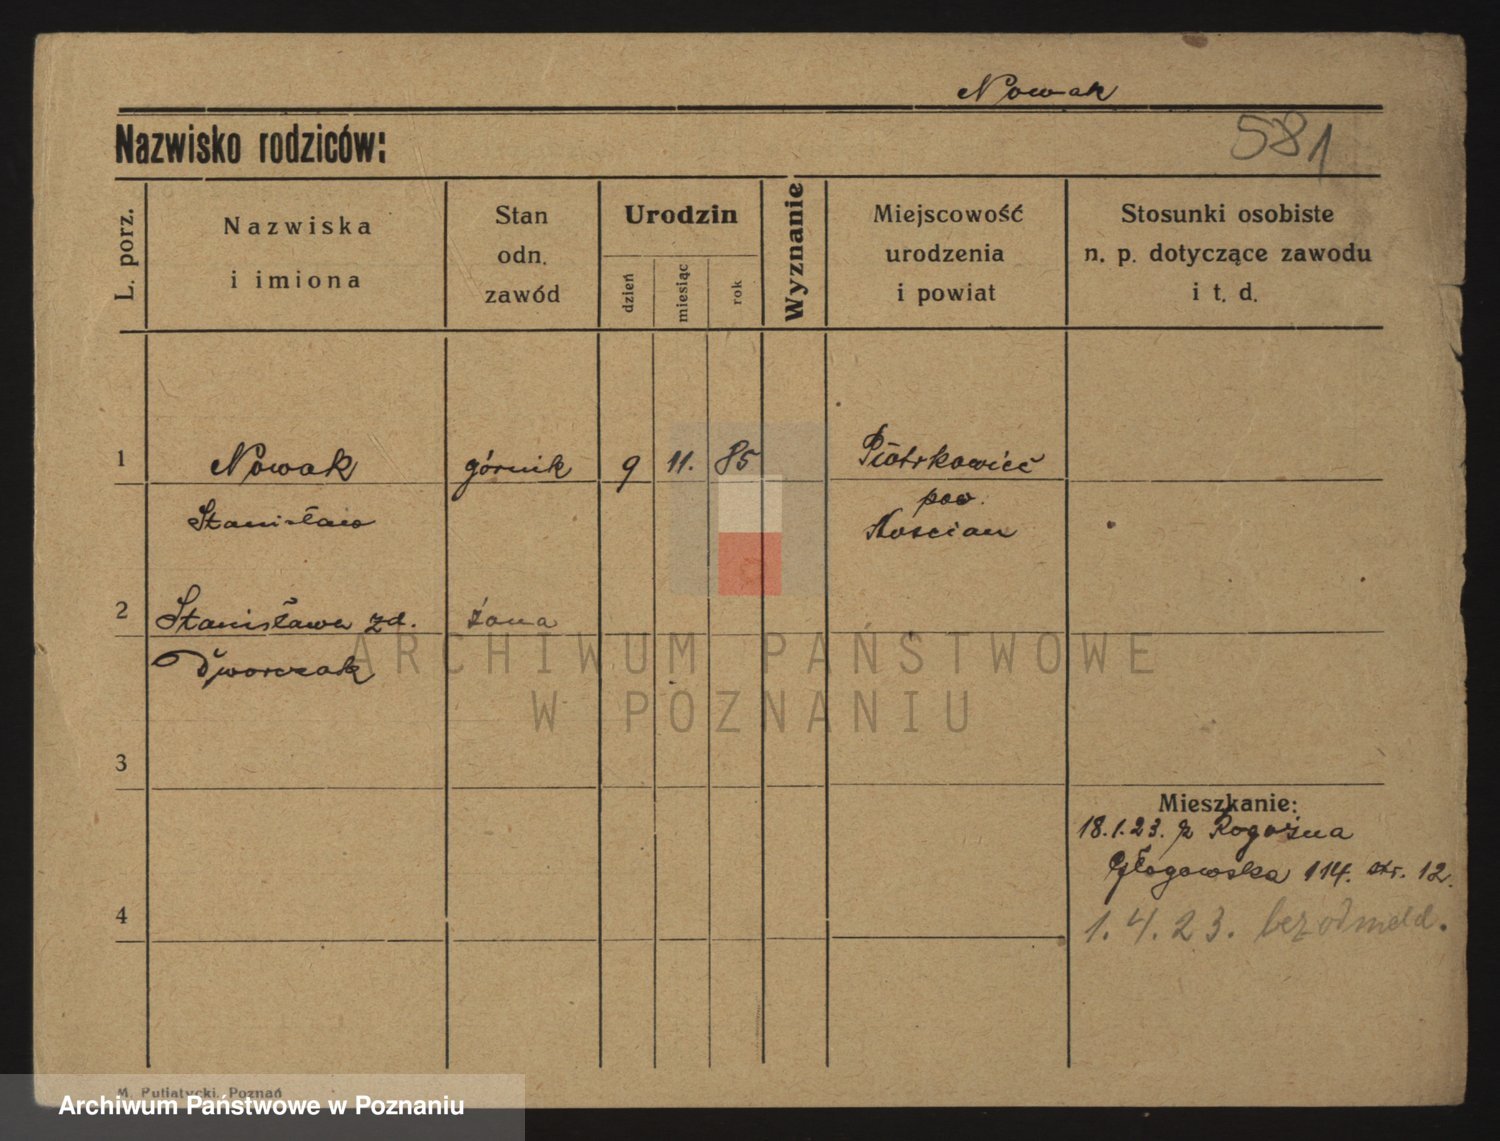 Nowak
581
Nazwisko rodziców:
L. porz.
Nazwiska
i imiona
Stan
odn.
zawód
Urodzin
dzień
miesiąc
rok
Wyznanie
Miejscowość
urodzenia
i powiat
Stosunki osobiste
n. p. dotyczące zawodu
i t. d.
1
Nowak górnik 9 11. 85 Piotrkowice
Stanisław
pow.
Kościan
2
Stanisława zd. żona
Dworczak
ARCHIWUM PAŃSTWOWE
W POZNANIU
3
Mieszkanie:
18.1.23. z Rogoźna
Głogowska 114. str. 12.
4
1.4.23. bez odmeld.
M. Putiatycki, Poznań
Archiwum Państwowe w Poznaniu